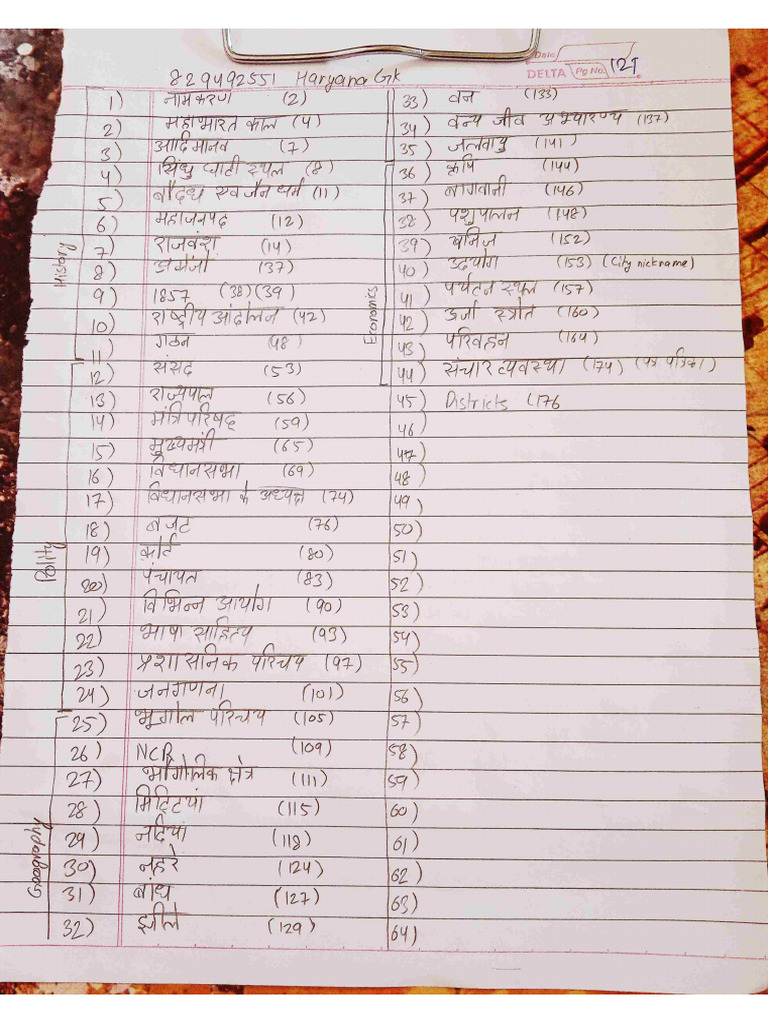 Date
DELTA Pg No. 121
829492551 Haryana Gk
History
1) नामकरण (2)
2) महाभारत काल (4)
3) आदिमानव (7)
4) सिंधु घाटी स्थल (8)
5) बौद्ध एवं जैन धर्म (11)
6) महाजनपद (12)
7) राजवंश (14)
8) अंग्रेजों (37)
9) 1857 (38) (39)
10) राष्ट्रीय आंदोलन (42)
11) गठन (48)
Polity
12) संसद (53)
13) राज्यपाल (56)
14) मंत्रिपरिषद् (59)
15) मुख्यमंत्री (65)
16) विधानसभा (69)
17) विधानसभा के अध्यक्ष (74)
18) बजट (76)
19) कोर्ट (80)
20) पंचायत (83)
21) विभिन्न आयोग (90)
22) भाषा साहित्य (93)
23) प्रशासनिक परिचय (97)
24) जनगणना (101)
25) भूगोल परिचय (105)
26) NCR (109)
27) भौगोलिक क्षेत्र (111)
28) मिट्टियां (115)
29) नदियां (118)
30) नहरे (124)
31) बांध (127)
32) झीले (129)
33) वन (133)
34) वन्य जीव अभ्यारण्य (137)
35) जलवायु (141)
Economics
36) कृषि (144)
37) बागवानी (146)
38) पशुपालन (148)
39) खनिज (152)
40) उद्योग (153) (City nickname)
41) पर्यटन स्थल (157)
42) ऊर्जा स्त्रोत (160)
43) परिवहन (164)
44) संचार व्यवस्था (174) (पत्र पत्रिका)
45) Districts (176
46)
47)
48)
49)
50)
51)
52)
53)
54)
55)
56)
57)
58)
59)
60)
61)
62)
63)
64)